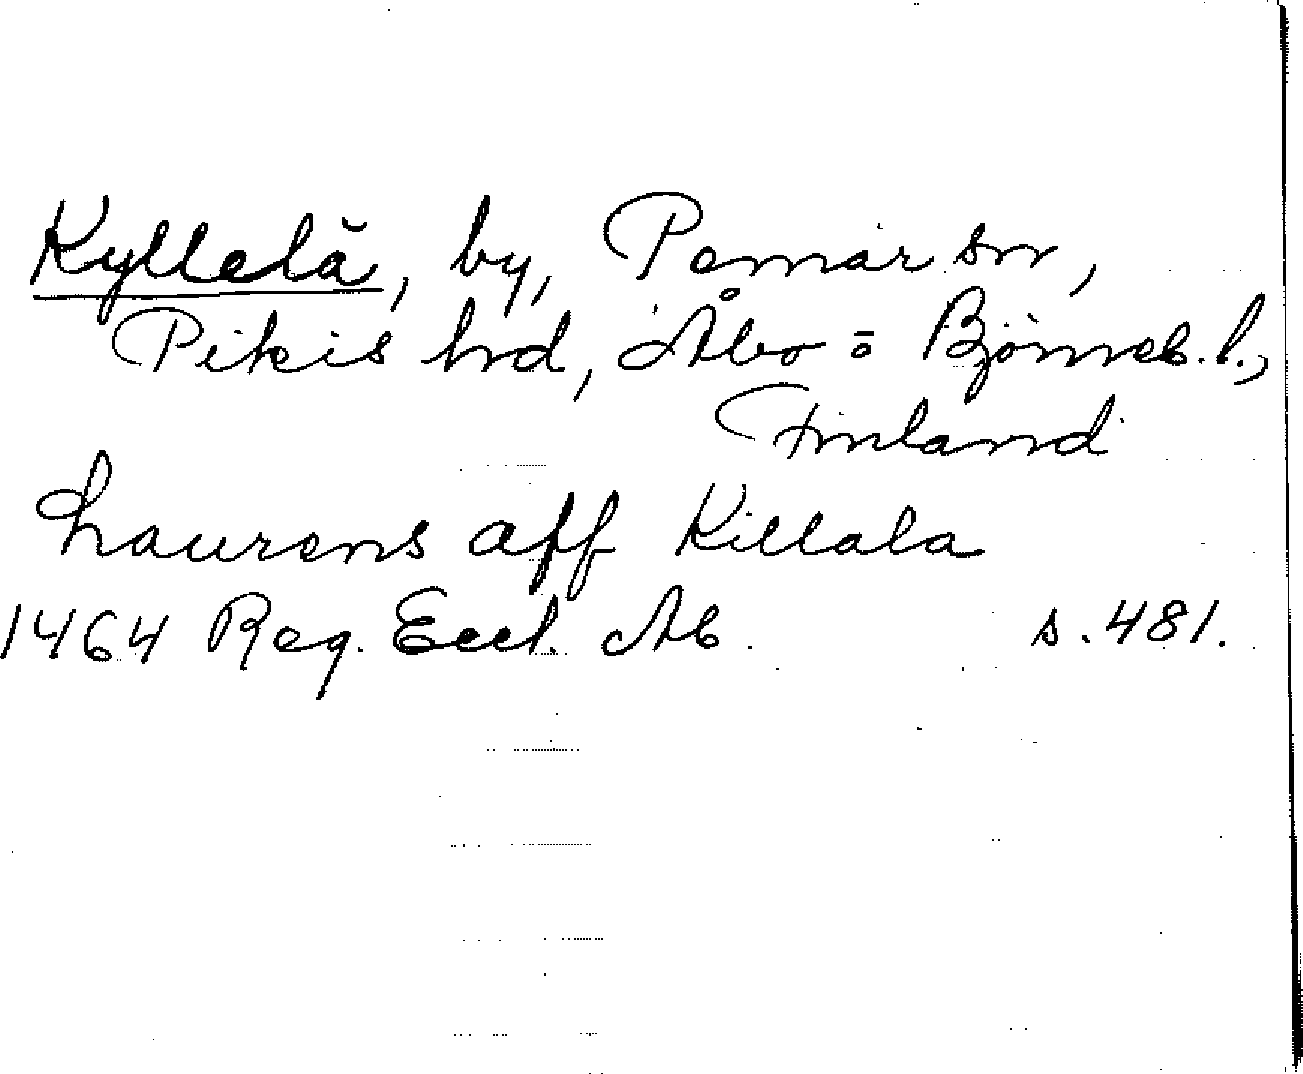 Kyllelä, by, Pemar sn,
Pikis hd, Åbo = Björneb. l.,
Finland
Laurens aff Killala
1464 Reg. Eccl. Ab. s. 481.